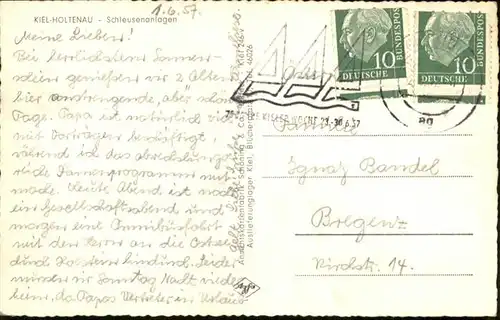 KIEL-HOLTENAU – Schleusenanlagen
1.6.57.
Meine Lieben!
Bei herrlichstem Sonnen-
schein genießen wir 2 
hier anstrengende, aber schöne
Tage. Papa ist natürlich viel
mit Vorträgen beschäftigt,
während ich das abwechslungs-
reiche Damenprogramm mit
mache. Heute Abend ist noch
ein Gesellschaftsabend und
morgen eine Omnibusfahrt
mit den Herren an die Ostsee
durch Holstein hindurch. Leider
müssen wir Sonntag Nacht wieder
heim, da Papas Vertreter in Urlaub
Ansichtskartenfabrik Schöning & Co
Auslieferungslager Kiel,
10
DEUTSCHE
BUNDESPOST
10
DEUTSCHE
BUNDESPOST
KIELER WOCHE 23.-30.6.57
Familie
Ignaz Bandel
Bregenz
Kirchstr. 14.